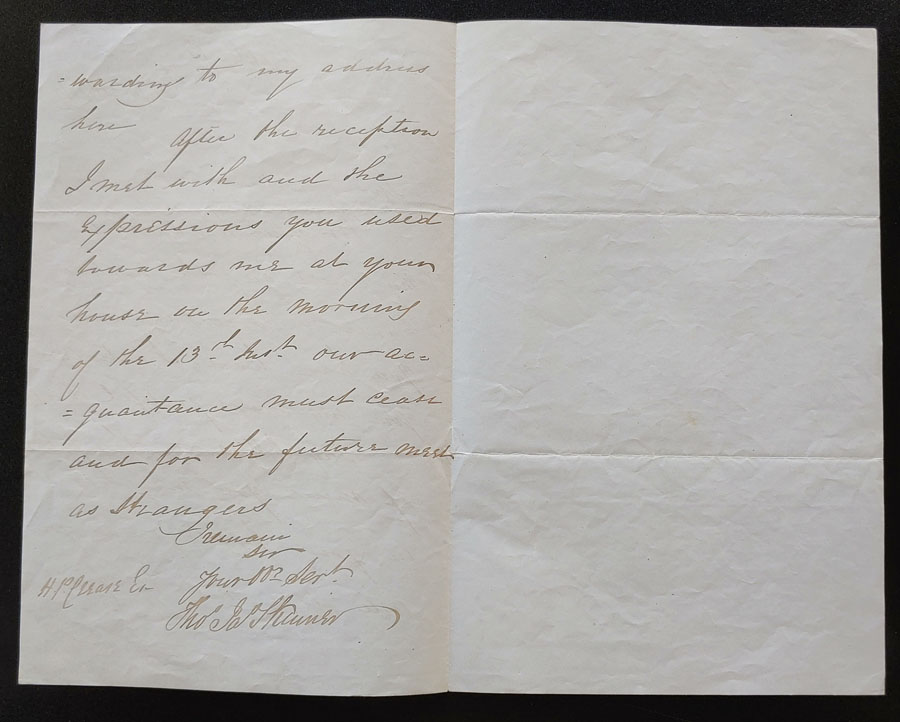 =warding to my address
here
After the reception
I met with and the
Expressions you used
towards me at your
house on the morning
of the 13th Inst our ac=
=quaintance must cease
and for the future meet
as Strangers
I remain
Sir
Your Obt Servt
H P Crease Esq
Thos Jas Skinner